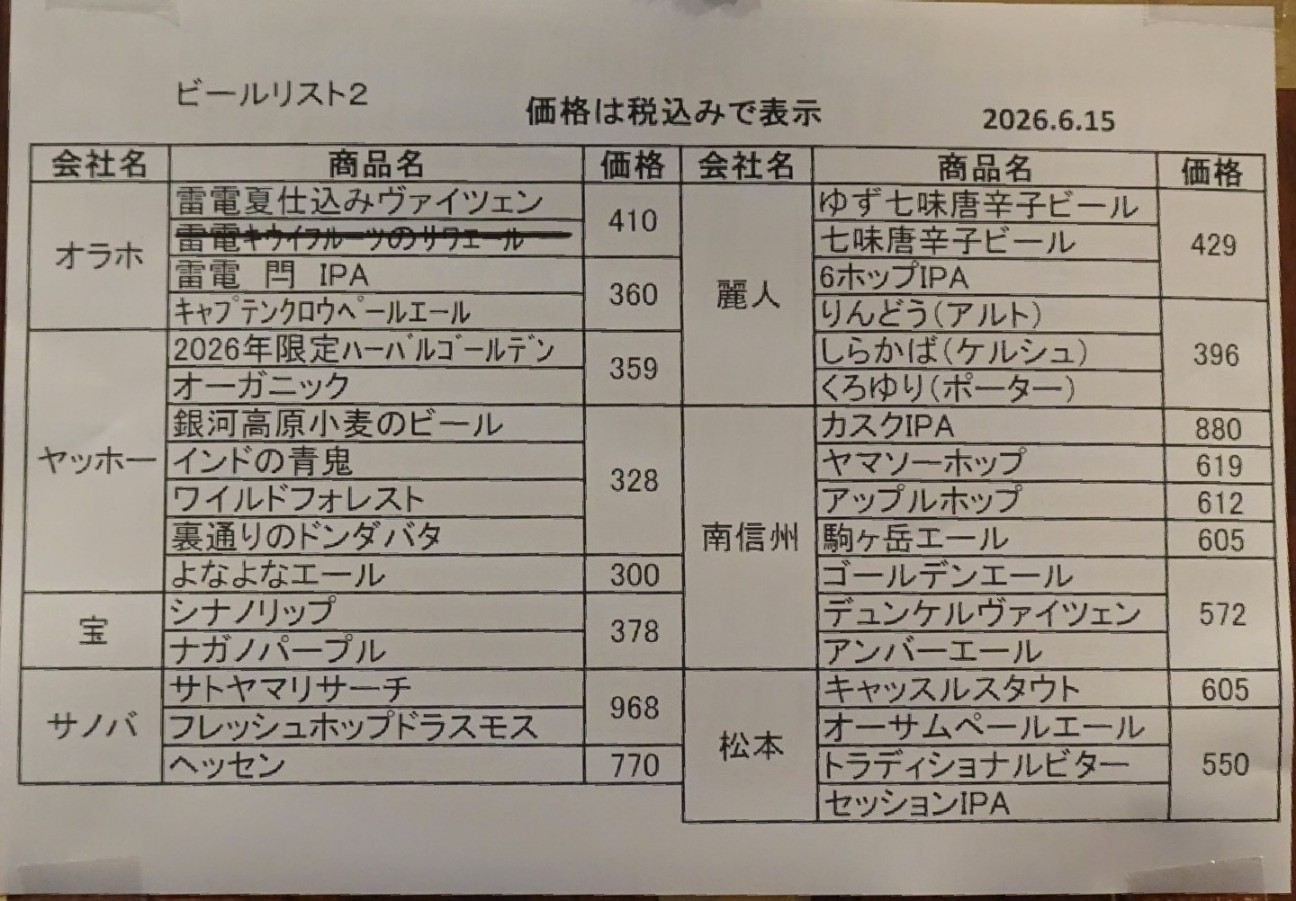 ビールリスト2
価格は税込みで表示
2026.6.15
会社名 商品名 価格
オラホ
雷電夏仕込みヴァイツェン
雷電キウイフルーツのサワエール
410
雷電 閂 IPA
キャプテンクロウペールエール
360
ヤッホー
2026年限定ハーバルゴールデン
オーガニック
359
銀河高原小麦のビール
インドの青鬼
ワイルドフォレスト
裏通りのドンダバタ
328
よなよなエール 300
宝
シナノリップ
ナガノパープル
378
サノバ
サトヤマリサーチ
フレッシュホップドラスモス
968
ヘッセン 770
会社名 商品名 価格
麗人
ゆず七味唐辛子ビール
七味唐辛子ビール
6ホップIPA
429
りんどう(アルト)
しらかば(ケルシュ)
くろゆり(ポーター)
396
南信州
カスクIPA 880
ヤマソーホップ 619
アップルホップ 612
駒ヶ岳エール 605
ゴールデンエール
デュンケルヴァイツェン
アンバーエール
572
松本
キャッスルスタウト 605
オーサムペールエール
トラディショナルビター
セッションIPA
550